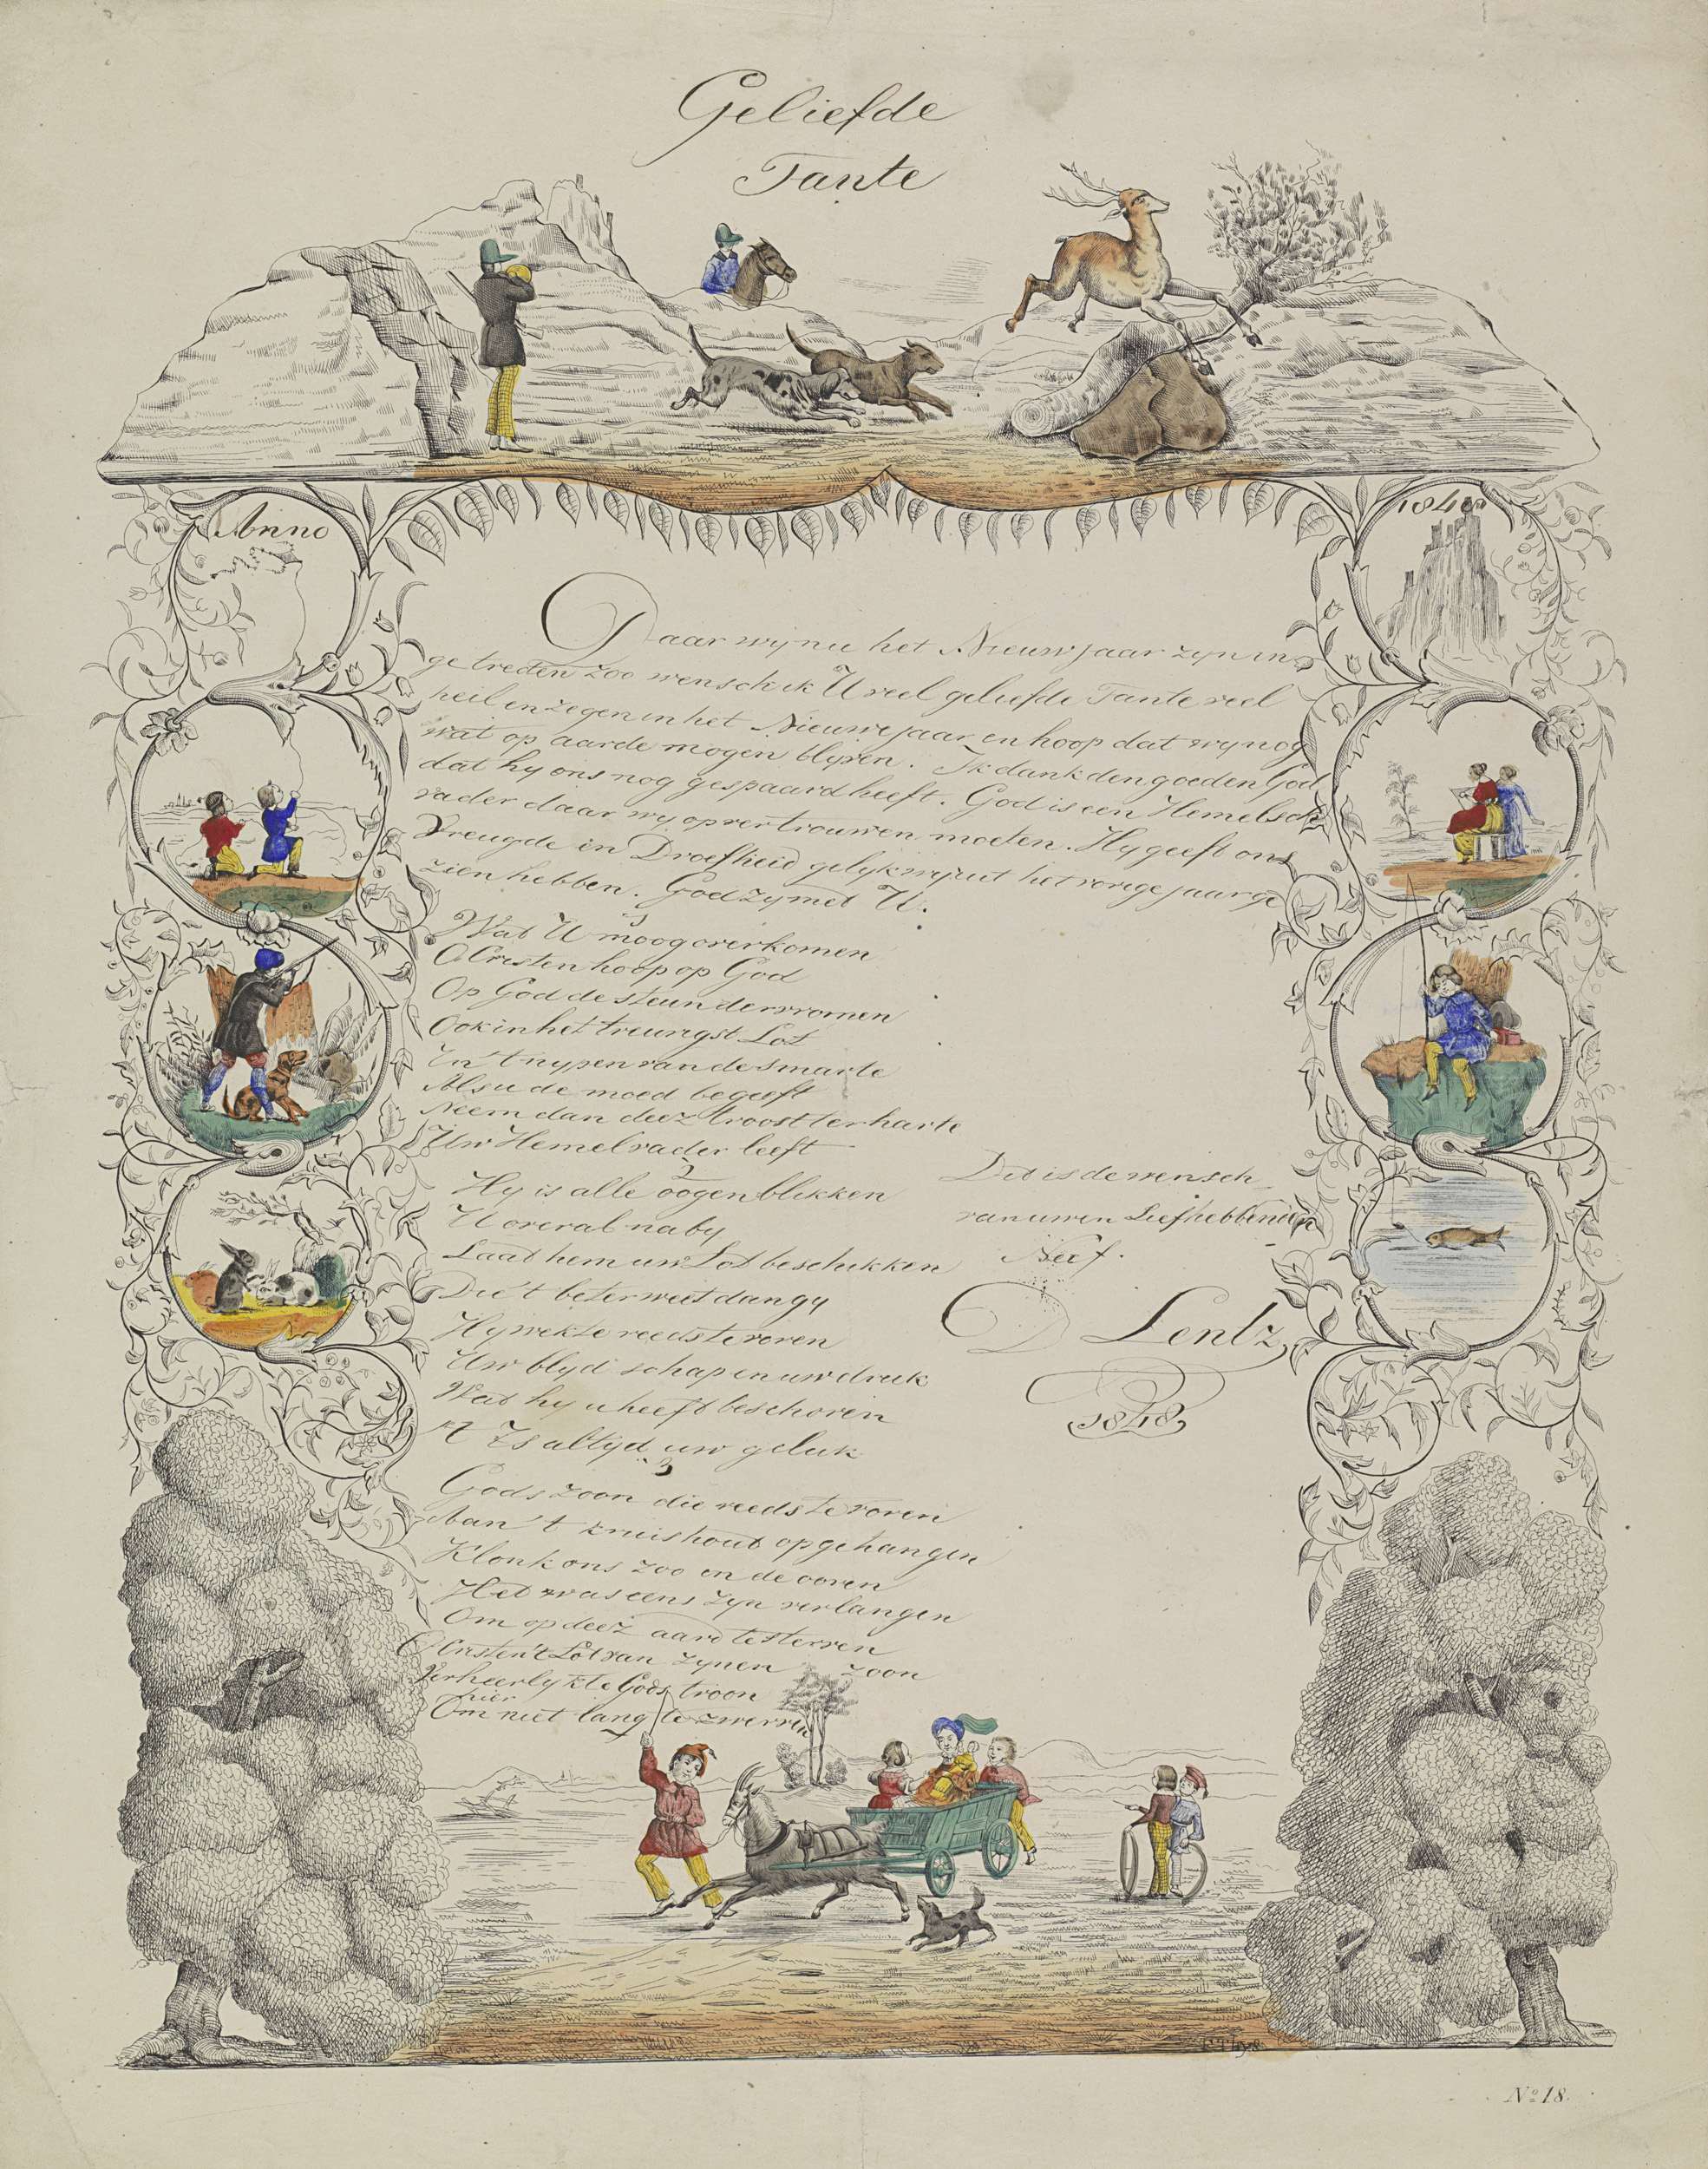 Geliefde
Tante
Anno
1848
Daar wij nu het Nieuwjaar zyn in
getreden zoo wensch ik U veel geliefde Tante veel
heil en zegen in het Nieuwejaar en hoop dat wy nog
wat op aarde mogen blyven. Ik dank den goeden God
dat hy ons nog gespaard heeft. God is een Hemelsch
vader daar wy op vertrouwen moeten. Hy geeft ons
Vreugde in Droefheid gelyk wy uit het vorige jaar ge
zien hebben. God zy met U.
Wat U moog overkomen
O Cristen hoop op God
Op God de steun der vromen
Ook in het treurigst Lot
In 't nypen van de smarte
Als u de moed begeeft
Neem dan deez troost ter harte
Uw Hemelvader leeft
2
Hy is alle oogenblikken
U overal naby
Laat hem uw Lot beschikken
Die 't beter weet dan gy
Hy wekte reeds te voren
Uw blyd schap en uw druk
Wat hy u heeft beschoren
't Is altyd uw geluk
3
Gods zoon die reeds te voren
Aan 't kruishout opgehangen
Klonk ons zoo in de ooren
Het was eens zyn verlangen
Om op deez aard te sterven
O Cristen 't Lot van zynen zoon
Verheerlykte Gods troon
hier
Om niet lang te zwerven
Dit is de wensch
van uwen Liefhebbenden
Neef.
D Lentz
1848
No 18.